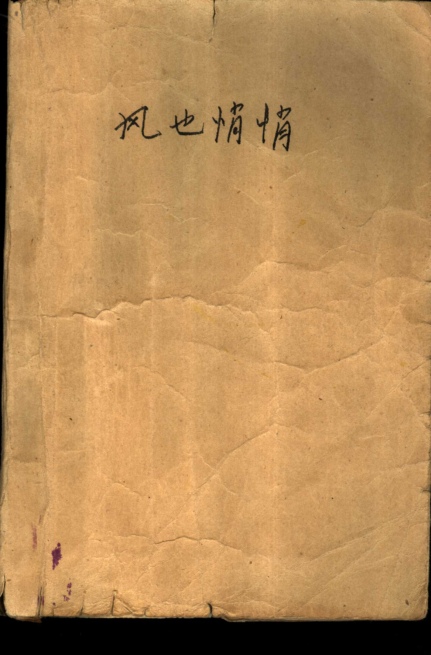 风也悄悄